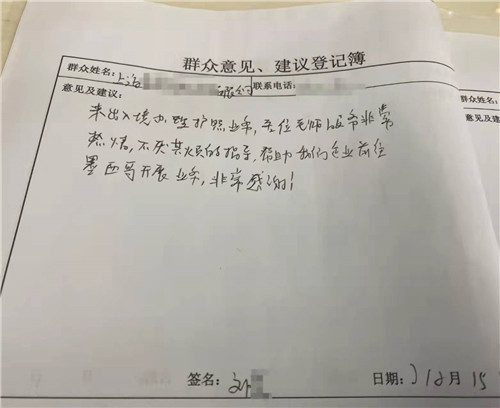 群众意见、建议登记簿
群众姓名：上海
联系电话：
意见及建议：
来出入境办理护照业务，各位老师服务非常
热情，不厌其烦的指导，帮助我们企业前往
墨西哥开展业务，非常感谢！
签名：孙
日期：12月15
群众姓
意见及